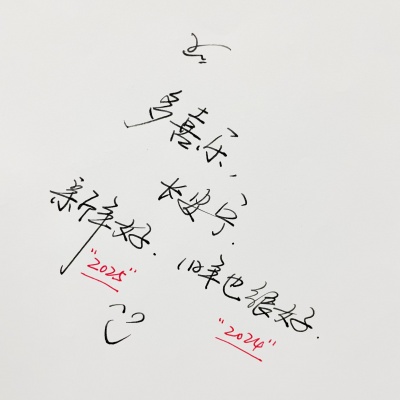 多喜乐,
长安宁.
新年好.
"2025"
旧年也很好.
"2024"